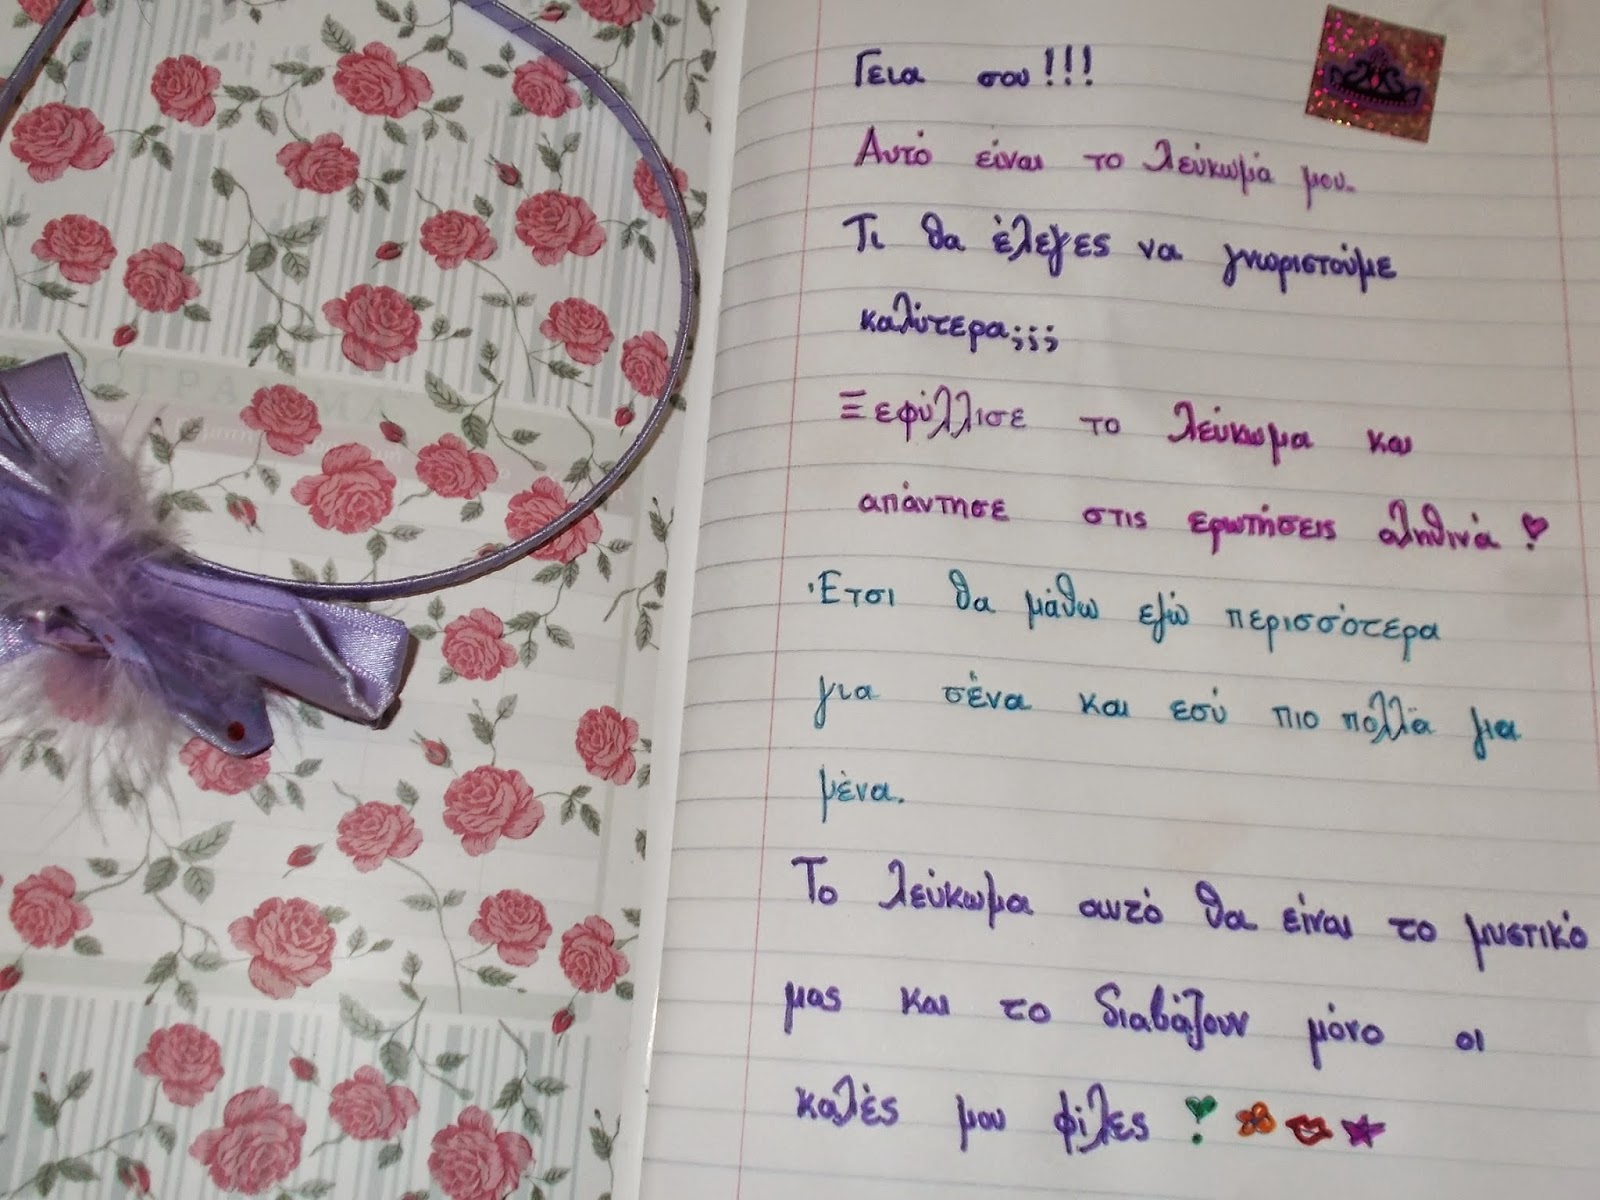 Γεια σου!!!
Αυτό είναι το λεύκωμά μου.
Τι θα έλεγες να γνωριστούμε
καλύτερα;;;
Ξεφύλλισε το λεύκωμα και
απάντησε στις ερωτήσεις αληθινά!
Έτσι θα μάθω εγώ περισσότερα
για σένα και εσύ πιο πολλά για
μένα.
Το λεύκωμα αυτό θα είναι το μυστικό
μας και το διαβάζουν μόνο οι
καλές μου φίλες!